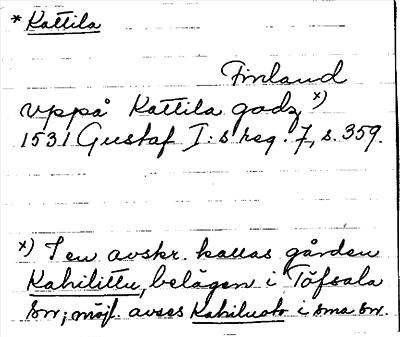 * Kattila
Finland
uppå Kattila godz x)
1531 Gustaf I:s reg. 7, s. 359.
x) I en avskr. kallas gården
Kahilittu, belägen i Töfsala
sn; möjl. avses Kahiluoto i sma sn.